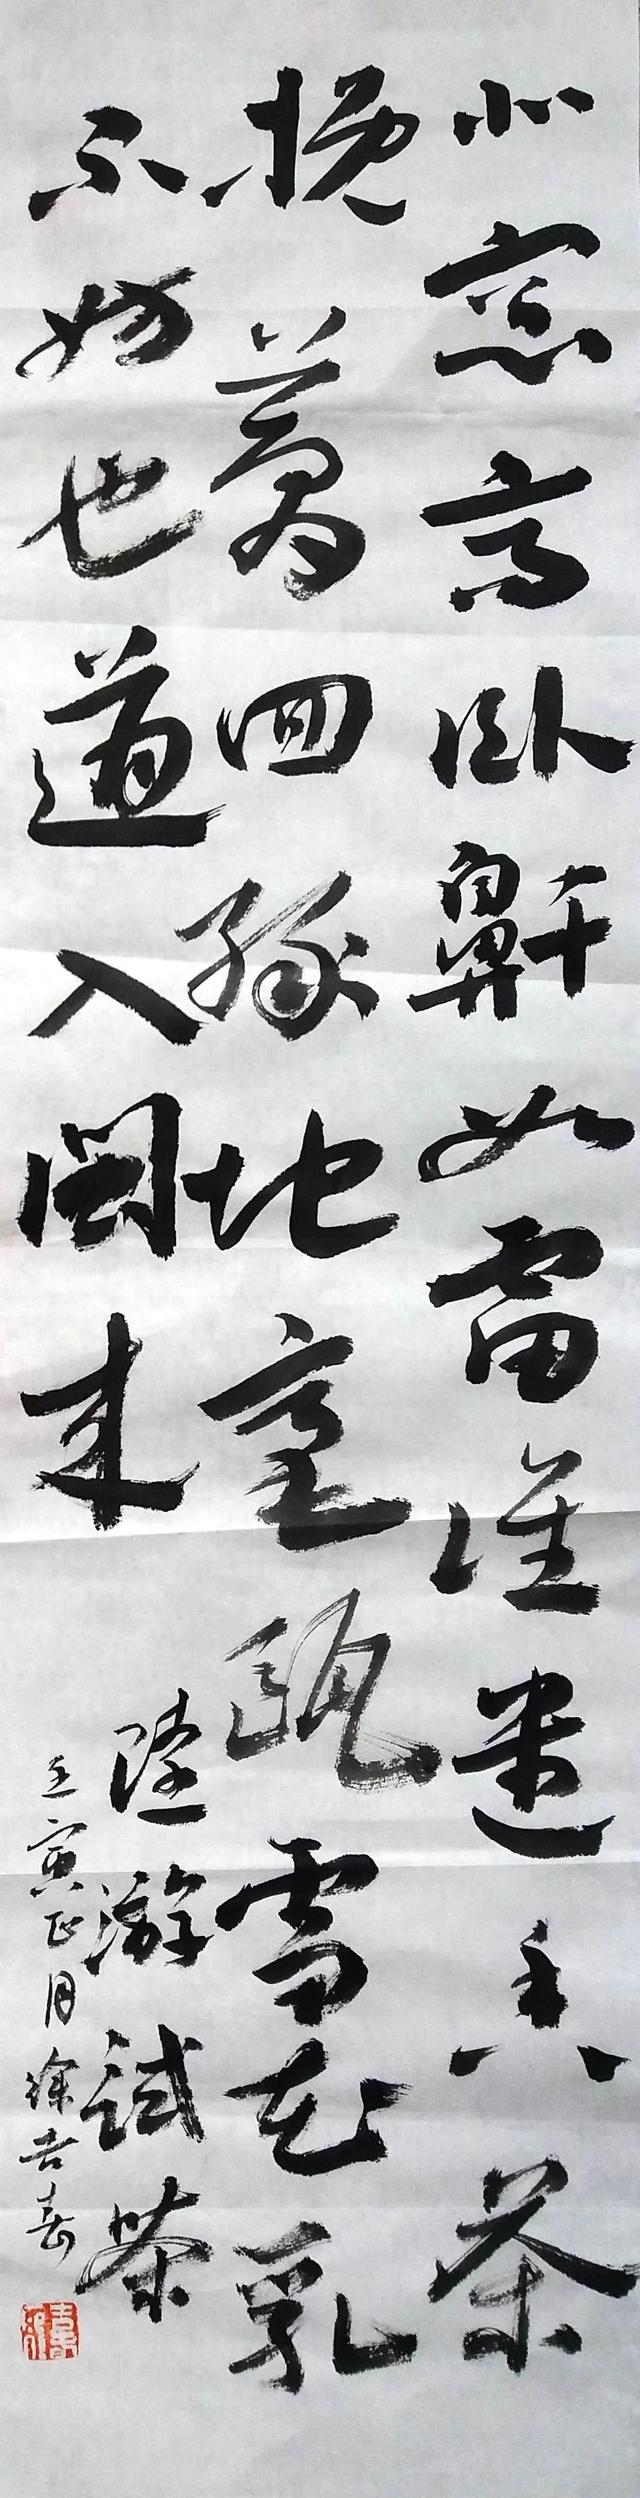 北窓高卧鼾如雷谁遣香茶
挽夢回绿地毫瓯雪花乳
不妨也道入闽来
陸游試茶
壬寅正月徐吉